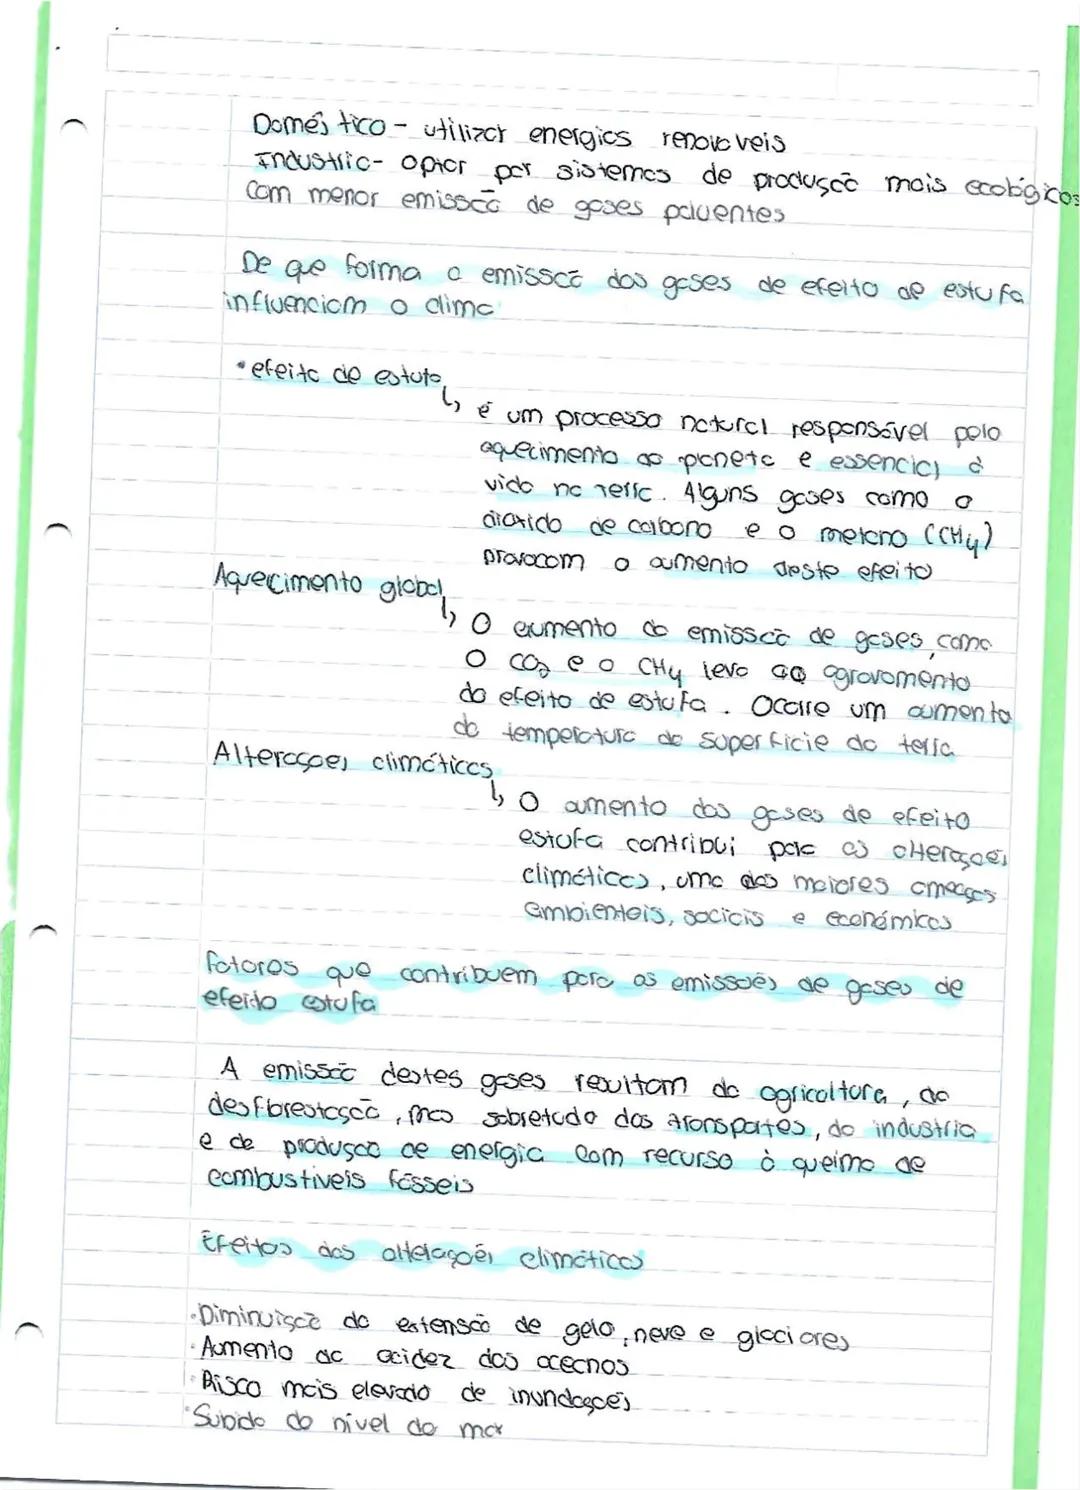 Doméstico - utilizar energias renováveis
Industria - optar por sistemas de produção mais ecológicos
com menor emissão de gases poluentes
De que forma a emissão dos gases de efeito de estufa
influenciam o clima
• efeito de estufa
↳ é um processo natural responsável pelo
aquecimento do planeta e essencial á
vida na Terra. Alguns gases como o
dióxido de carbono e o metano (CH4)
provocam o aumento deste efeito
Aquecimento global
↳ O aumento da emissão de gases, como
O CO2 e o CH4 leva ao agravamento
do efeito de estufa. Ocorre um aumento
da temperatura de superficie da terra
Alterações climáticas
↳ O aumento dos gases de efeito
estufa contribui para as alterações
climáticas, uma das maiores ameaças
ambientais, sociais e económicas
fatores que contribuem para as emissões de gases de
efeito estufa
A emissão destes gases resultam da agricoltura, da
desflorestação, mas sobretudo dos transportes, da industria
e de produção de energia com recurso à queima de
combustiveis fósseis
Efeitos das alterações climáticas
• Diminuição da extensão de gelo, neve e glaciares
• Aumento da acidez dos ocecnos
• Risco mais elevado de inundações
• Subida do nivel do mar